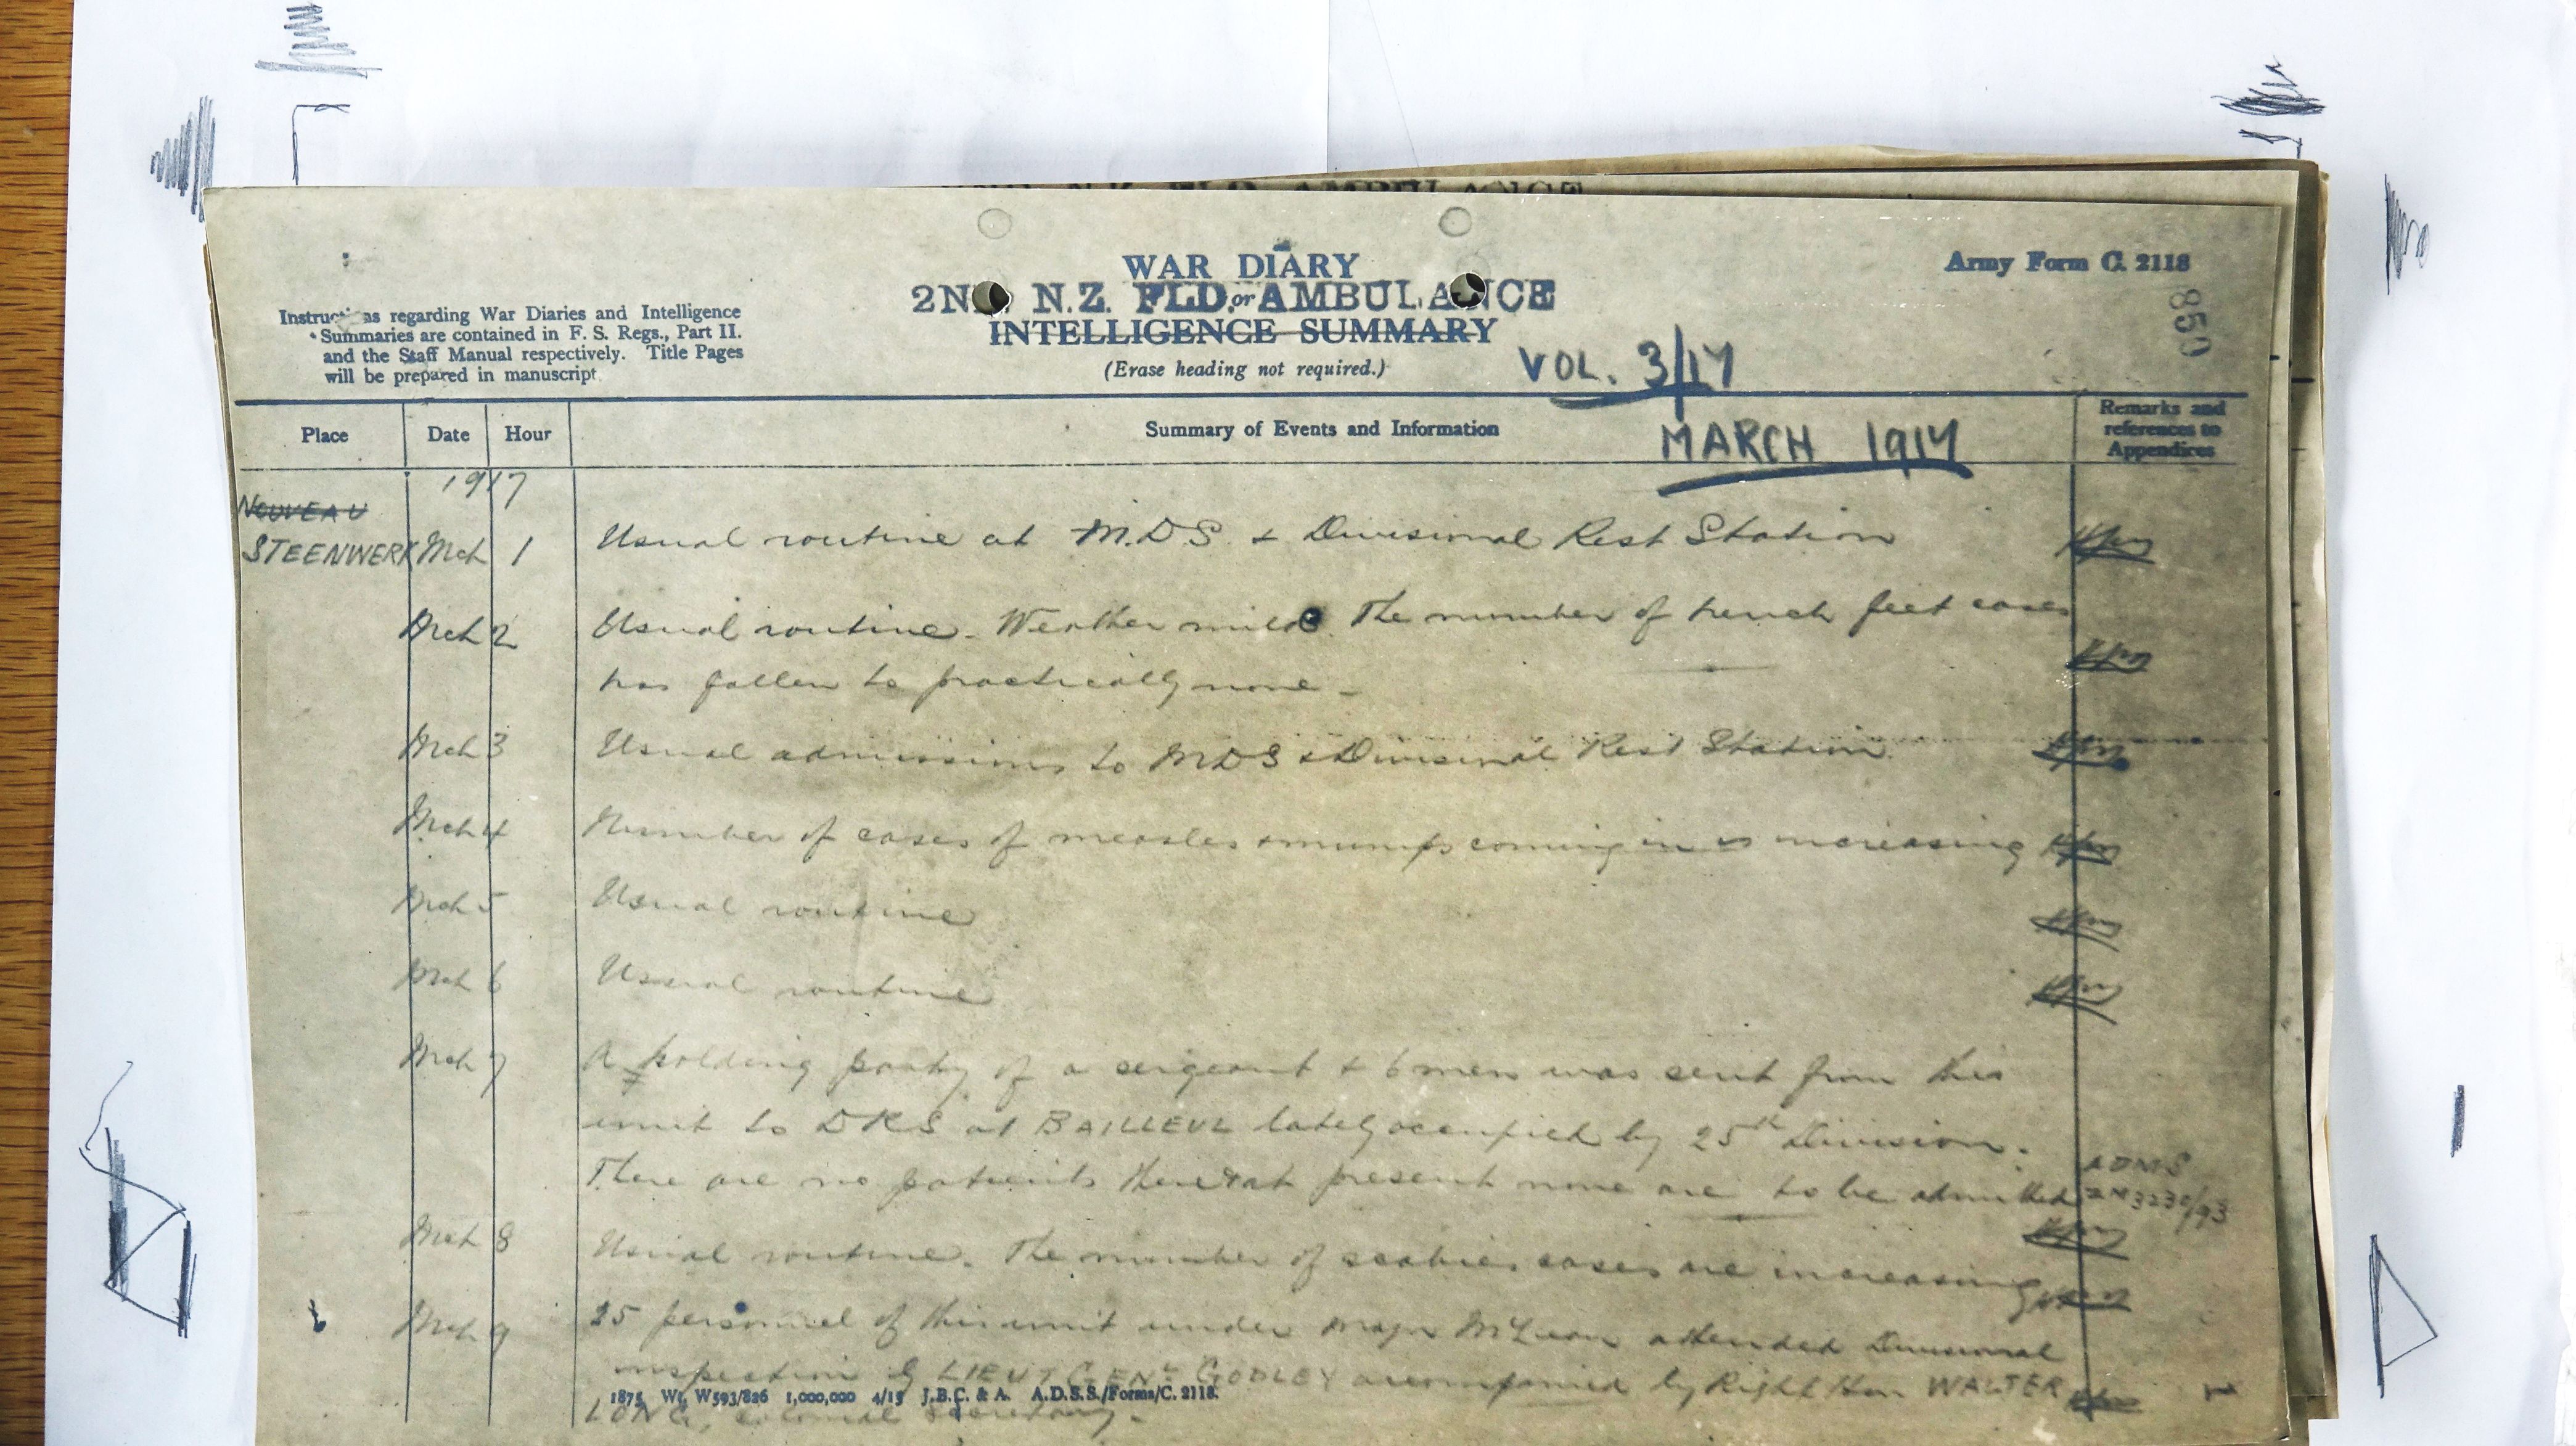 WAR DIARY
Army Form C. 2118
2ND N.Z. FLD. or AMBULANCE
INTELLIGENCE SUMMARY
(Erase heading not required.)
850
Instructions regarding War Diaries and Intelligence
Summaries are contained in F. S. Regs., Part II.
and the Staff Manual respectively. Title Pages
will be prepared in manuscript
VOL. 3/17
MARCH 1917
Place Date Hour Summary of Events and Information Remarks and
references to
Appendices
1917
NOUVEAU
STEENWERK Mch 1 Usual routine at M.D.S. & Divisional Rest Station
Mch 2 Usual routine. Weather mild. The number of trench feet cases
has fallen to practically none -
Mch 3 Usual admissions to MDS & Divisional Rest Station.
Mch 4 Number of cases of measles & mumps coming in is increasing
Mch 5 Usual routine
Mch 6 Usual routine
Mch 7 A holding party of a sergeant & 6 men was sent from this
unit to DRS at BAILLEUL lately occupied by 25th Division.
There are no patients there & at present none are to be admitted
ADMS
Mch 8 Usual routine. The number of scabies cases are increasing
Mch 9 25 personnel of this unit under Major McLean attended Divisional
inspection by LIEUT GENL GODLEY accompanied by Right Hon WALTER
1875 Wt. W593/826 1,000,000 4/15 J.B.C. & A. A.D.S.S./Forms/C. 2118.
LONG, Colonial Secretary.